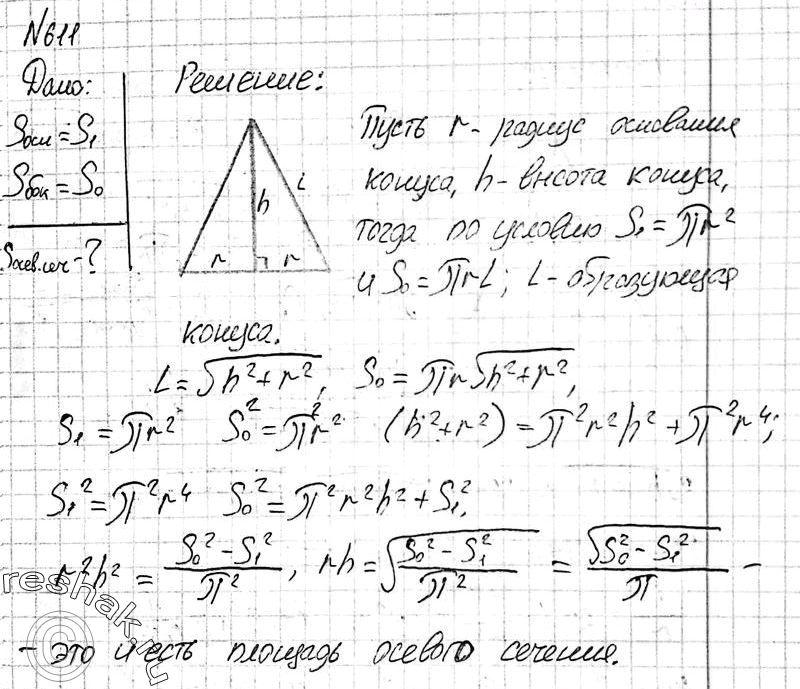 N611
Дано:
Sосн = S₁
Sбок = S₀
Sосев.сеч - ?
Решение:
h
L
r
r
Пусть r - радиус основания
конуса, h - высота конуса,
тогда по условию S₁ = πr²
и S₀ = πrL; L - образующая
конуса.
L = √(h² + r²), S₀ = πr√(h² + r²),
S₁ = πr² S₀² = π²r² (h² + r²) = π²r²h² + π²r⁴;
S₁² = π²r⁴ S₀² = π²r²h² + S₁²,
r²h² = (S₀² - S₁²)/π², rh = √((S₀² - S₁²)/π²) = √(S₀² - S₁²)/π -
- это и есть площадь осевого сечения.
reshak.ru